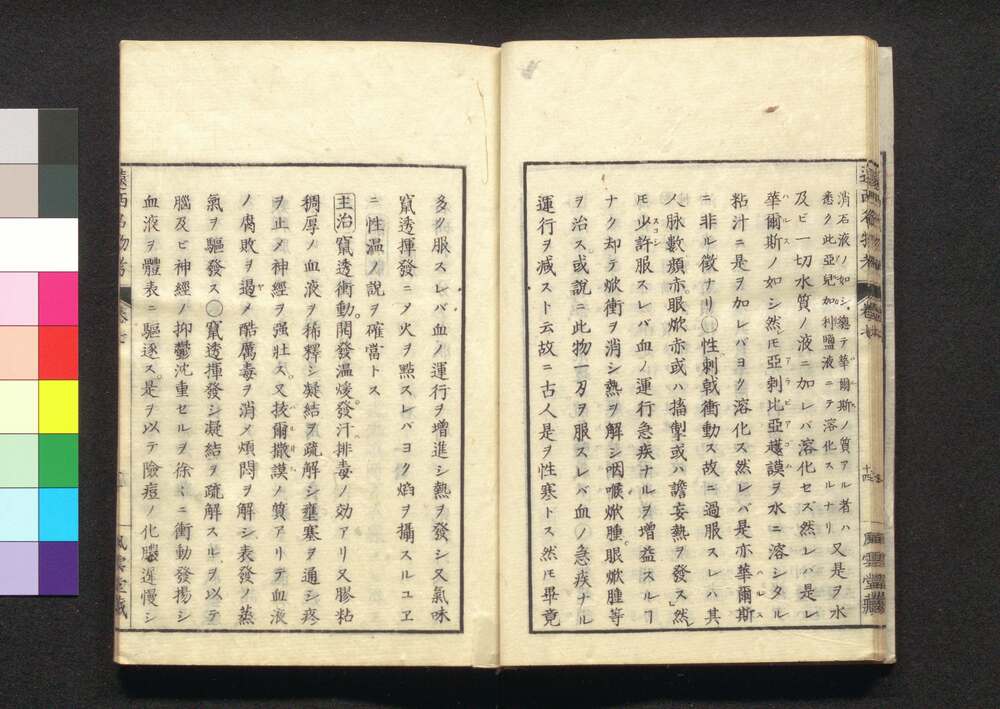 消石液ノ如シ總テ華爾斯ノ質アル者ハ
悉ク此亞兒加利鹽液ニテ溶化スルナリ
又是ヲ水
及ビ一切水質ノ液ニ加レバ溶化セズ然レハ是レ
華爾斯ノ如シ然ㇳモ亞剌比亞護謨ヲ水ニ溶シタル
粘汁ニ是ヲ加レバヨク溶化ス然レバ是亦華爾斯
ニ非ル徴ナリ○性刺戟衝動ス故ニ過服スレハ其
人ノ脉數顔亦眼焮赤或ハ搐掣或ハ譫妄熱ヲ發ス然
ㇳモ少許服スレバ血ノ運行急疾ナルヲ增益スルヿ
ナク却テ焮衝ヲ消シ熱ヲ解シ咽喉焮腫眼焮腫等
ヲ治ス或說ニ此物一刄ヲ服スレバ血ノ急疾ナル
運行ヲ减スト云故ニ古人是ヲ性寒トス然ㇳモ畢竟
十四
風雲堂藏
多ク服スレバ血ノ運行ヲ增進シ熱ヲ發シ又氣味
竄透揮發ニヲ火ヲ點スレバヨク焰ヲ攝スルユヱ
ニ性温ノ說ヲ確當トス
主治 竄透衝動。開發温煖。發汗排毒ノ効アリ又膠粘
稠厚ノ血液ヲ稀釋シ凝結ヲ疏解シ壅塞ヲ通シ疼
ヲ止メ神經ヲ强壮ス又拔爾撒謨ノ質アリテ血液
ノ腐敗ヲ遏メ酷厲毒ヲ消メ煩悶ヲ解シ表發ノ蒸
氣ヲ驅發ス○竄透揮發シ凝結ヲ疏解スルヲ以テ
腦及ビ神經ノ抑鬱沈重セルヲ徐々ニ衝動發揚シ
血液ヲ體表ニ驅逐ス。是ヲ以テ險痘ノ化膿遲慢シ
遠西名物考
卷七
風雲堂藏